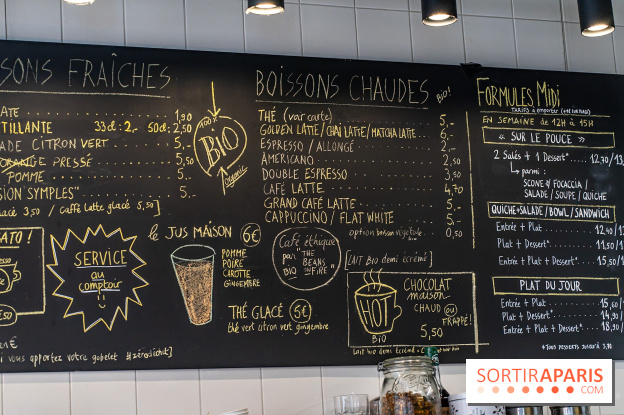 SONS FRAÎCHES
ATE 1,90
TILLANTE 33cl: 2,- 50cl: 2,50
ADE CITRON VERT 5,-
ORANGE PRESSÉ 5,-
POMME 5,-
SION "SYMPLES" 5,-
GLACÉ 3,50 / CAFFÈ LATTE GLACÉ 5,50]
100%
BIO
organic
ATO !
SERVICE
au
comptoir
le JUS MAISON 6€
POMME
POIRE
CAROTTE
GINGEMBRE
THÉ GLACÉ 5€
thé vert citron vert gingembre
si vous apportez votre gobelet #zérodéchet]
BOISSONS CHAUDES BIO!
THÉ (voir carte) 5,-
GOLDEN LATTE / CHAÏ LATTE / MATCHA LATTE 6,-
ESPRESSO / ALLONGÉ 2,-
AMERICANO 2,50
DOUBLE ESPRESSO 3,50
CAFÉ LATTE 4,70
GRAND CAFÉ LATTE 5,-
CAPPUCCINO / FLAT WHITE 5,-
option boisson végétale 0,50
Café éthique
par "THE
BEANS
ON FIRE"
BIO
[LAIT BIO demi écrémé]
HOT
BIO
CHOCOLAT
maison
CHAUD OU
FRAPPÉ!
5,50
FORMULES MIDI
TARIFS à emporter
EN SEMAINE DE 12H À 15H
« SUR LE POUCE »
2 Salés + 1 Dessert*
parmi :
SCONE / FOCACCIA /
SALADE / SOUPE / QUICHE
QUICHE+SALADE / BOWL / SANDWICH
Entrée + Plat
Plat + Dessert*
Entrée + Plat + Dessert*
PLAT DU JOUR
Entrée + Plat
Plat + Dessert*
Entrée + Plat + Dessert*
* TOUS DESSERTS JUSQU'À 3,90
SORTIRAPARIS
COM